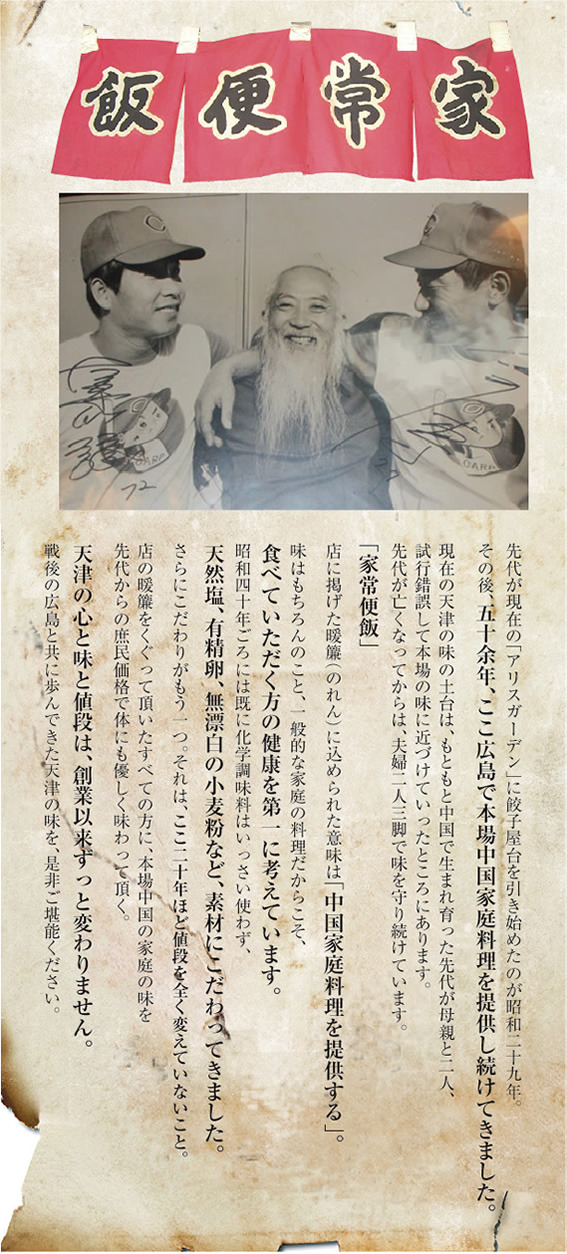 家常便飯
CARP
CARP
72
先代が現在の「アリスガーデン」に餃子屋台を引き始めたのが昭和二十九年。
その後、五十余年、ここ広島で本場中国家庭料理を提供し続けてきました。
現在の天津の味の土台は、もともと中国で生まれ育った先代が母親と二人、
試行錯誤して本場の味に近づけていったところにあります。
先代が亡くなってからは、夫婦二人三脚で味を守り続けています。
「家常便飯」
店に掲げた暖簾（のれん）に込められた意味は「中国家庭料理を提供する」。
味はもちろんのこと、一般的な家庭の料理だからこそ、
食べていただく方の健康を第一に考えています。
昭和四十年ごろには既に化学調味料はいっさい使わず、
天然塩、有精卵、無漂白の小麦粉など、素材にこだわってきました。
さらにこだわりがもう一つ。それは、ここ二十年ほど値段を全く変えていないこと。
店の暖簾をくぐって頂いたすべての方に、本場中国の家庭の味を
先代からの庶民価格で体にも優しく味わって頂く。
天津の心と味と値段は、創業以来ずっと変わりません。
戦後の広島と共に歩んできた天津の味を、是非ご堪能ください。